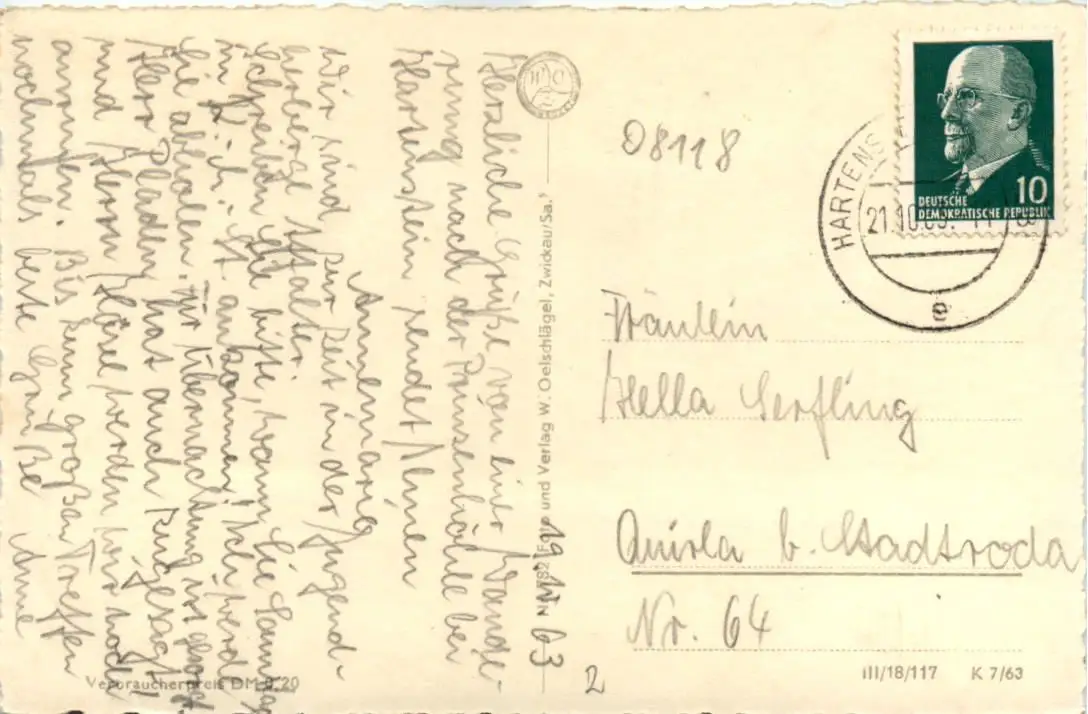 Herzliche Grüße von einer Wande-
rung nach der Prinzenhöhle bei
Hartenstein sendet Ihnen
Annemarie
Wir sind zur Zeit in der Jugend-
herberge
Schreiben Sie bitte, wann Sie
in K. ankommen, ich werde
Sie abholen. Für Übernachtung ist gesorgt
Herr hat auch zugesagt
und Herrn werden wir noch
anrufen. Bis zum großen Treffen
nochmals beste Grüße Anne
19. 10. 63
Verbraucherpreis DM 0,20
Foto und Verlag W. Oelschlägel, Zwickau/Sa.
08118
DEUTSCHE
DEMOKRATISCHE REPUBLIK
10
HARTENS
21.10.63.
e
Fräulein
Hella Serfling
Quirla b. Stadtroda
Nr. 64
III/18/117 K 7/63
2